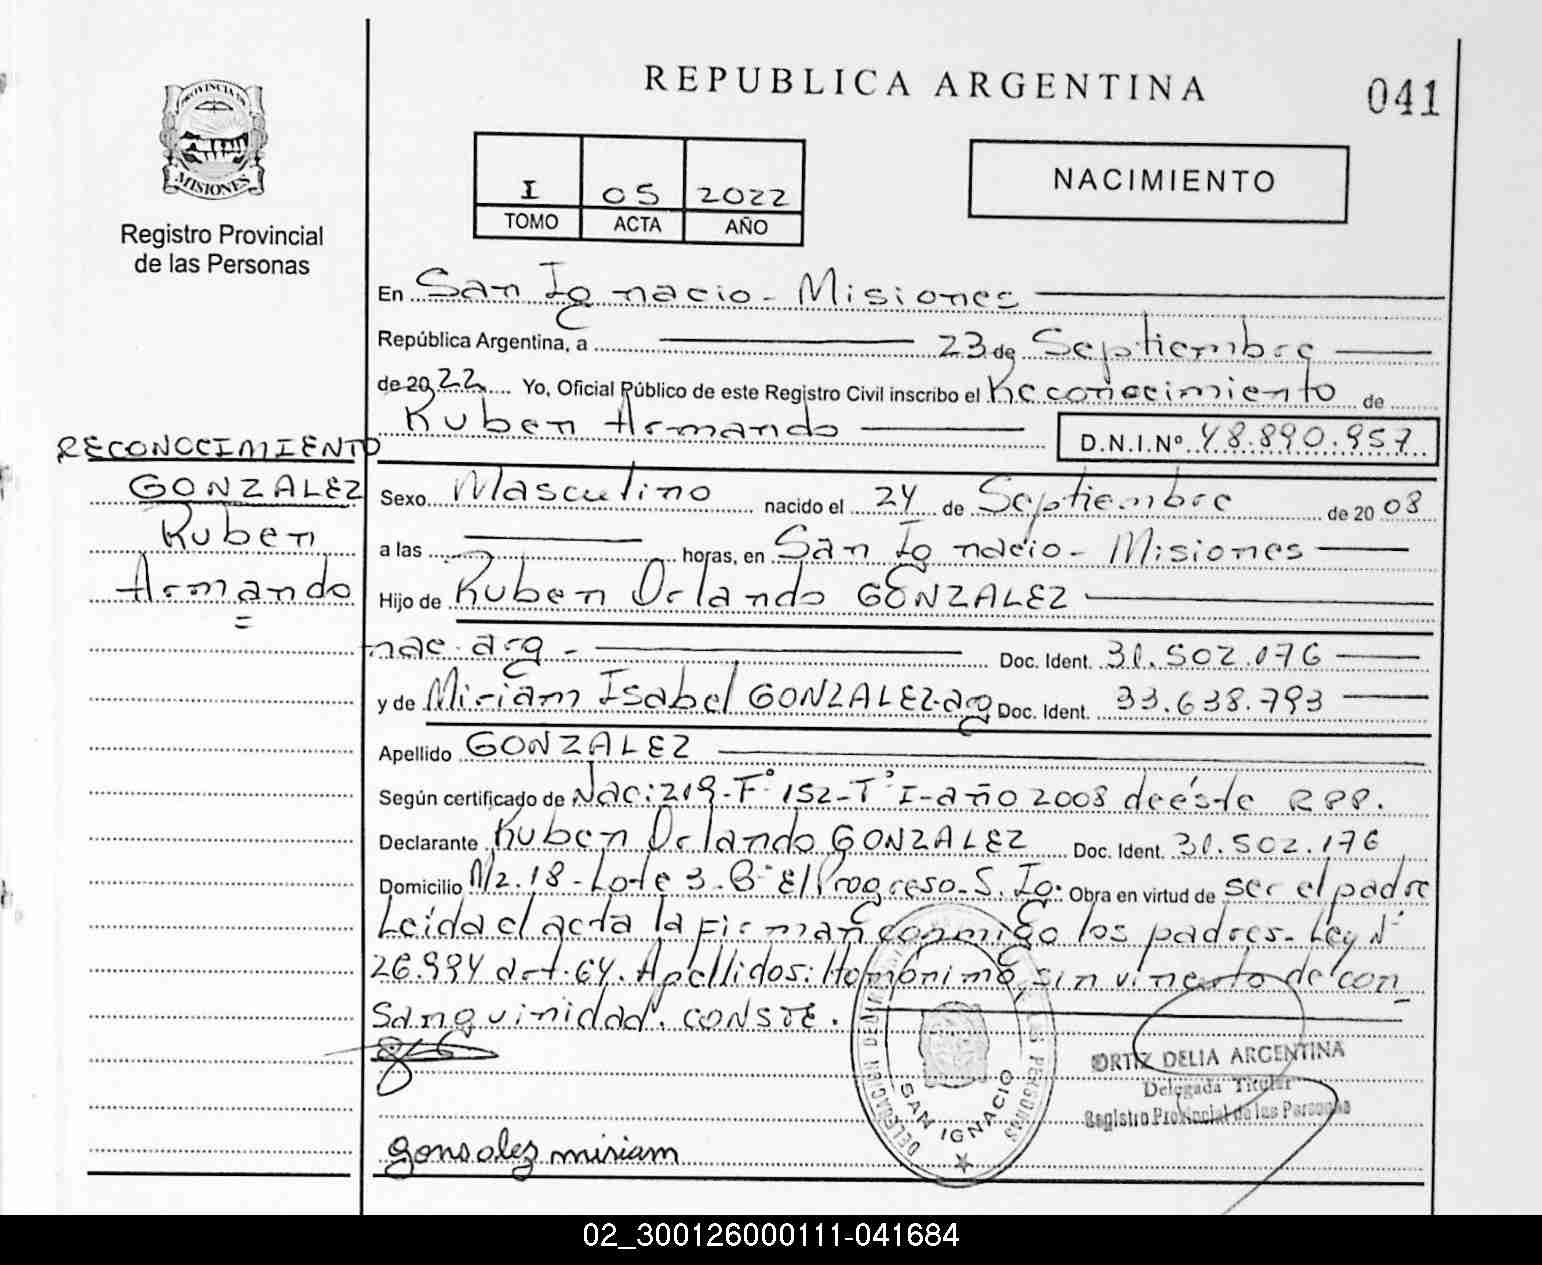 REPUBLICA ARGENTINA
041
PROVINCIA DE
MISIONES
Registro Provincial
de las Personas
I 05 2022
TOMO ACTA AÑO
NACIMIENTO
En San Ignacio - Misiones
República Argentina, a 23 de Septiembre
de 2022 Yo, Oficial Público de este Registro Civil inscribo el Reconocimiento de
Ruben Armando D.N.I.Nº 48.890.957
RECONOCIMIENTO
GONZALEZ
Ruben
Armando
=
Sexo Masculino nacido el 24 de Septiembre de 2008
a las horas, en San Ignacio - Misiones
Hijo de Ruben Orlando GONZALEZ
nac. arg - Doc. Ident. 31.502.176
y de Miriam Isabel GONZALEZ-arg Doc. Ident. 33.638.793
Apellido GONZALEZ
Según certificado de Nac: 219-Fº 152-Tº I-año 2008 de éste RPP.
Declarante Ruben Orlando GONZALEZ Doc. Ident. 31.502.176
Domicilio Mz. 18 - Lote 3 - Bº El Progreso - S. Ig. Obra en virtud de ser el padre
Leída el acta la Firman conmigo los padres. Ley Nº
26.994 art. 64. Apellidos: Homónimo, sin vínculo de con
sanguinidad. CONSTE.
DELEGACION DE LAS PERSONAS
SAN IGNACIO
ORTIZ DELIA ARGENTINA
Delegada Titular
Registro Provincial de las Personas
gonsalez miriam
02_300126000111-041684